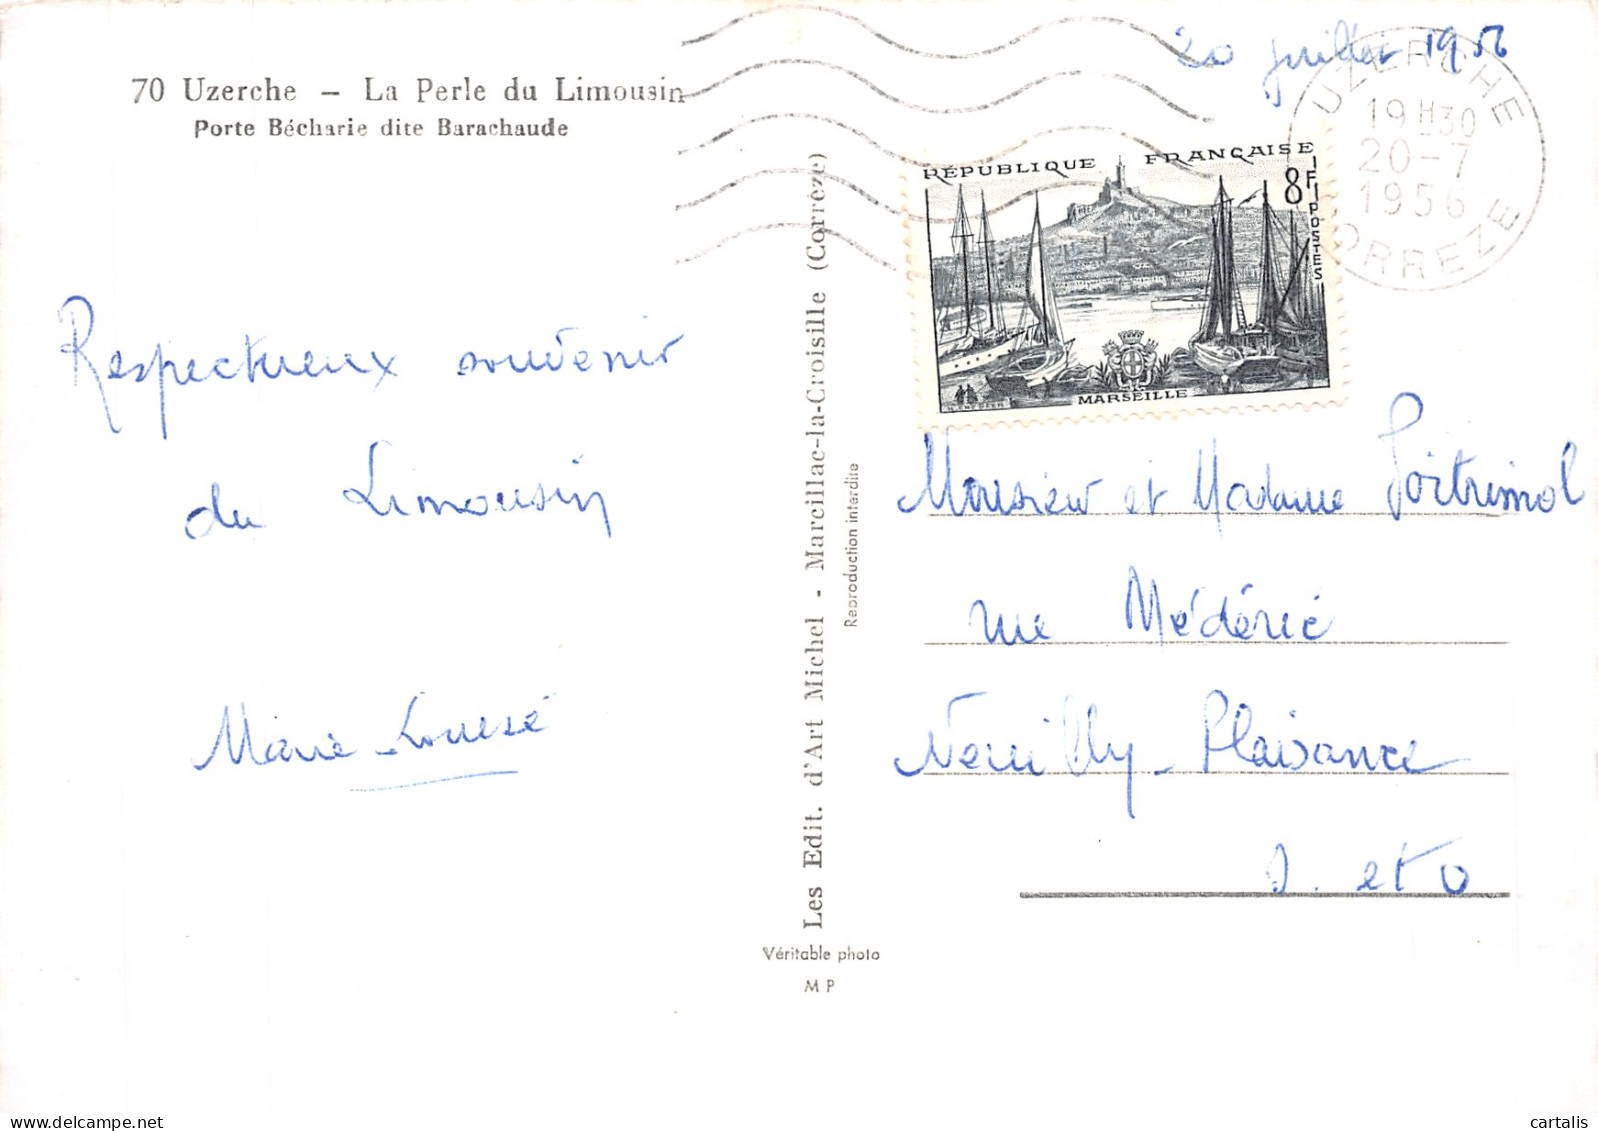 70 Uzerche – La Perle du Limousin
Porte Bécharie dite Barachaude
20 juillet 1956
UZERCHE
19H30
20-7
1956
CORREZE
RÉPUBLIQUE FRANÇAISE
8F
POSTES
MARSEILLE
Respectueux souvenir
du Limousin
Marie-Louise
Les Edit. d'Art Michel - Marcillac-la-Croisille (Corrèze)
Reproduction interdite
Monsieur et Madame Poitrimol
rue Médéric
Neuilly-Plaisance
S. et O
Véritable photo
MP
cartalis